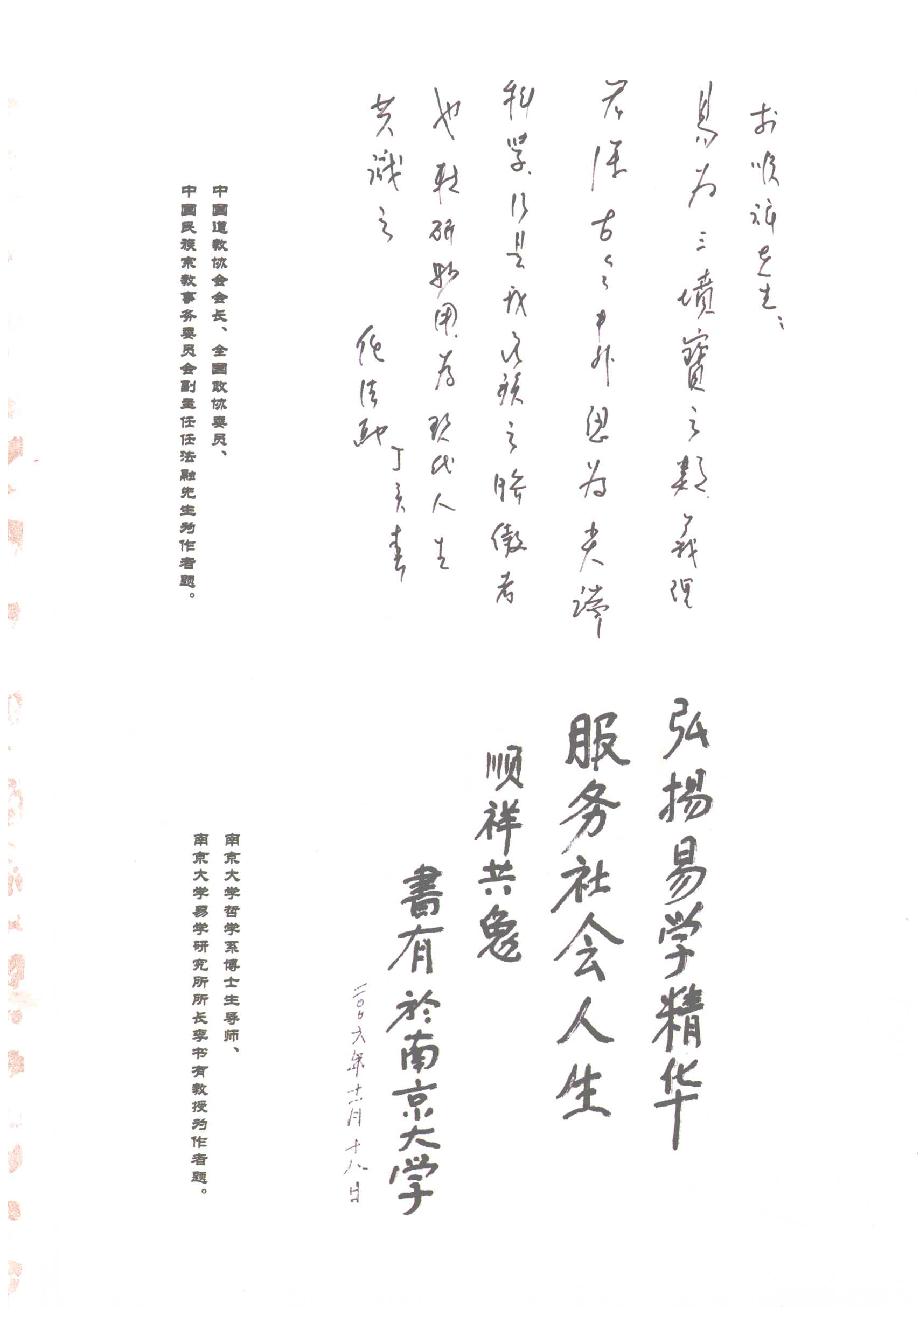 顺祥先生：
易为三坟宝之类义理
古今中外因为
科学，乃是我民族之骄傲者
也 研 用 为现代人生
共識之
任法融 丁亥春
中国道教协会会长、全国政协委员、
中国民族宗教事务委员会副主任任法融先生为作者题。
弘揚易学精华
服务社会人生
顺祥共勉
書有於南京大学
二〇〇六年十一月十八日
南京大学哲学系博士生导师、
南京大学易学研究所所长李书有教授为作者题。